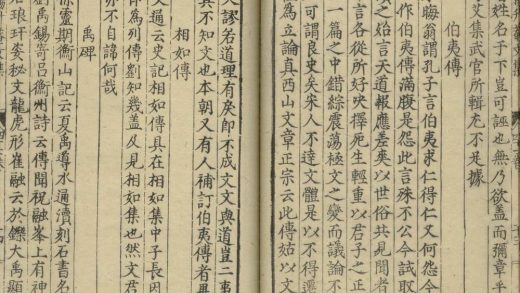 姓名子下豈可誣也無乃欲盖而彌章乎
艾集武官所輯尤不足據
伯夷傳
晦翁謂孔子言伯夷求仁得仁又何怨今
作伯夷傳滿腹是怨此言殊不公今試取
之始言天道報應差爽以世俗共見聞者
言各從所好决擇死生輕重以君子之正
一篇之中錯綜震蕩極文之變而議論不
可謂良史矣宋人不達文體是以不得遷
為立論真西山文章正宗云此傳姑以文
文謬若道理有戾即不成文文與道豈二事
其不知文也本朝又有人補訂伯夷傳者
相如傳
文通云史記相如傳具在相如集中子長因
為列傳劉知幾盖及見相如集也然文君
亦不自諱何哉
禹碑
徐靈期衡山記云夏禹導水通瀆刻石書名
劉禹錫寄呂衡州詩云傳聞祝融峯上有神
古琅玕姿秘文龍虎形崔融云於鑠大禹顯